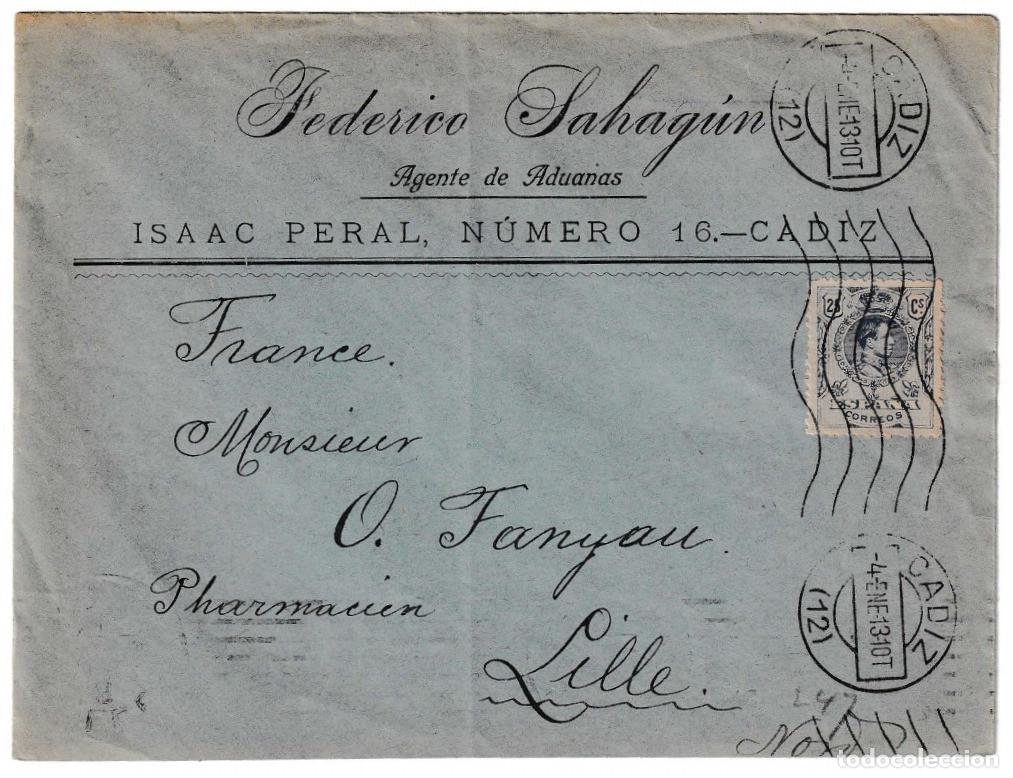 Federico Sahagún
Agente de Aduanas
ISAAC PERAL, NÚMERO 16.—CADIZ
CADIZ
-4-ENE-13·10T
(12)
25 Cs
CORREOS
France.
Monsieur
O. Fanyau.
Pharmacien
Lille.
CADIZ
-4-ENE-13·10T
(12)
247
Nord
todocoleccion